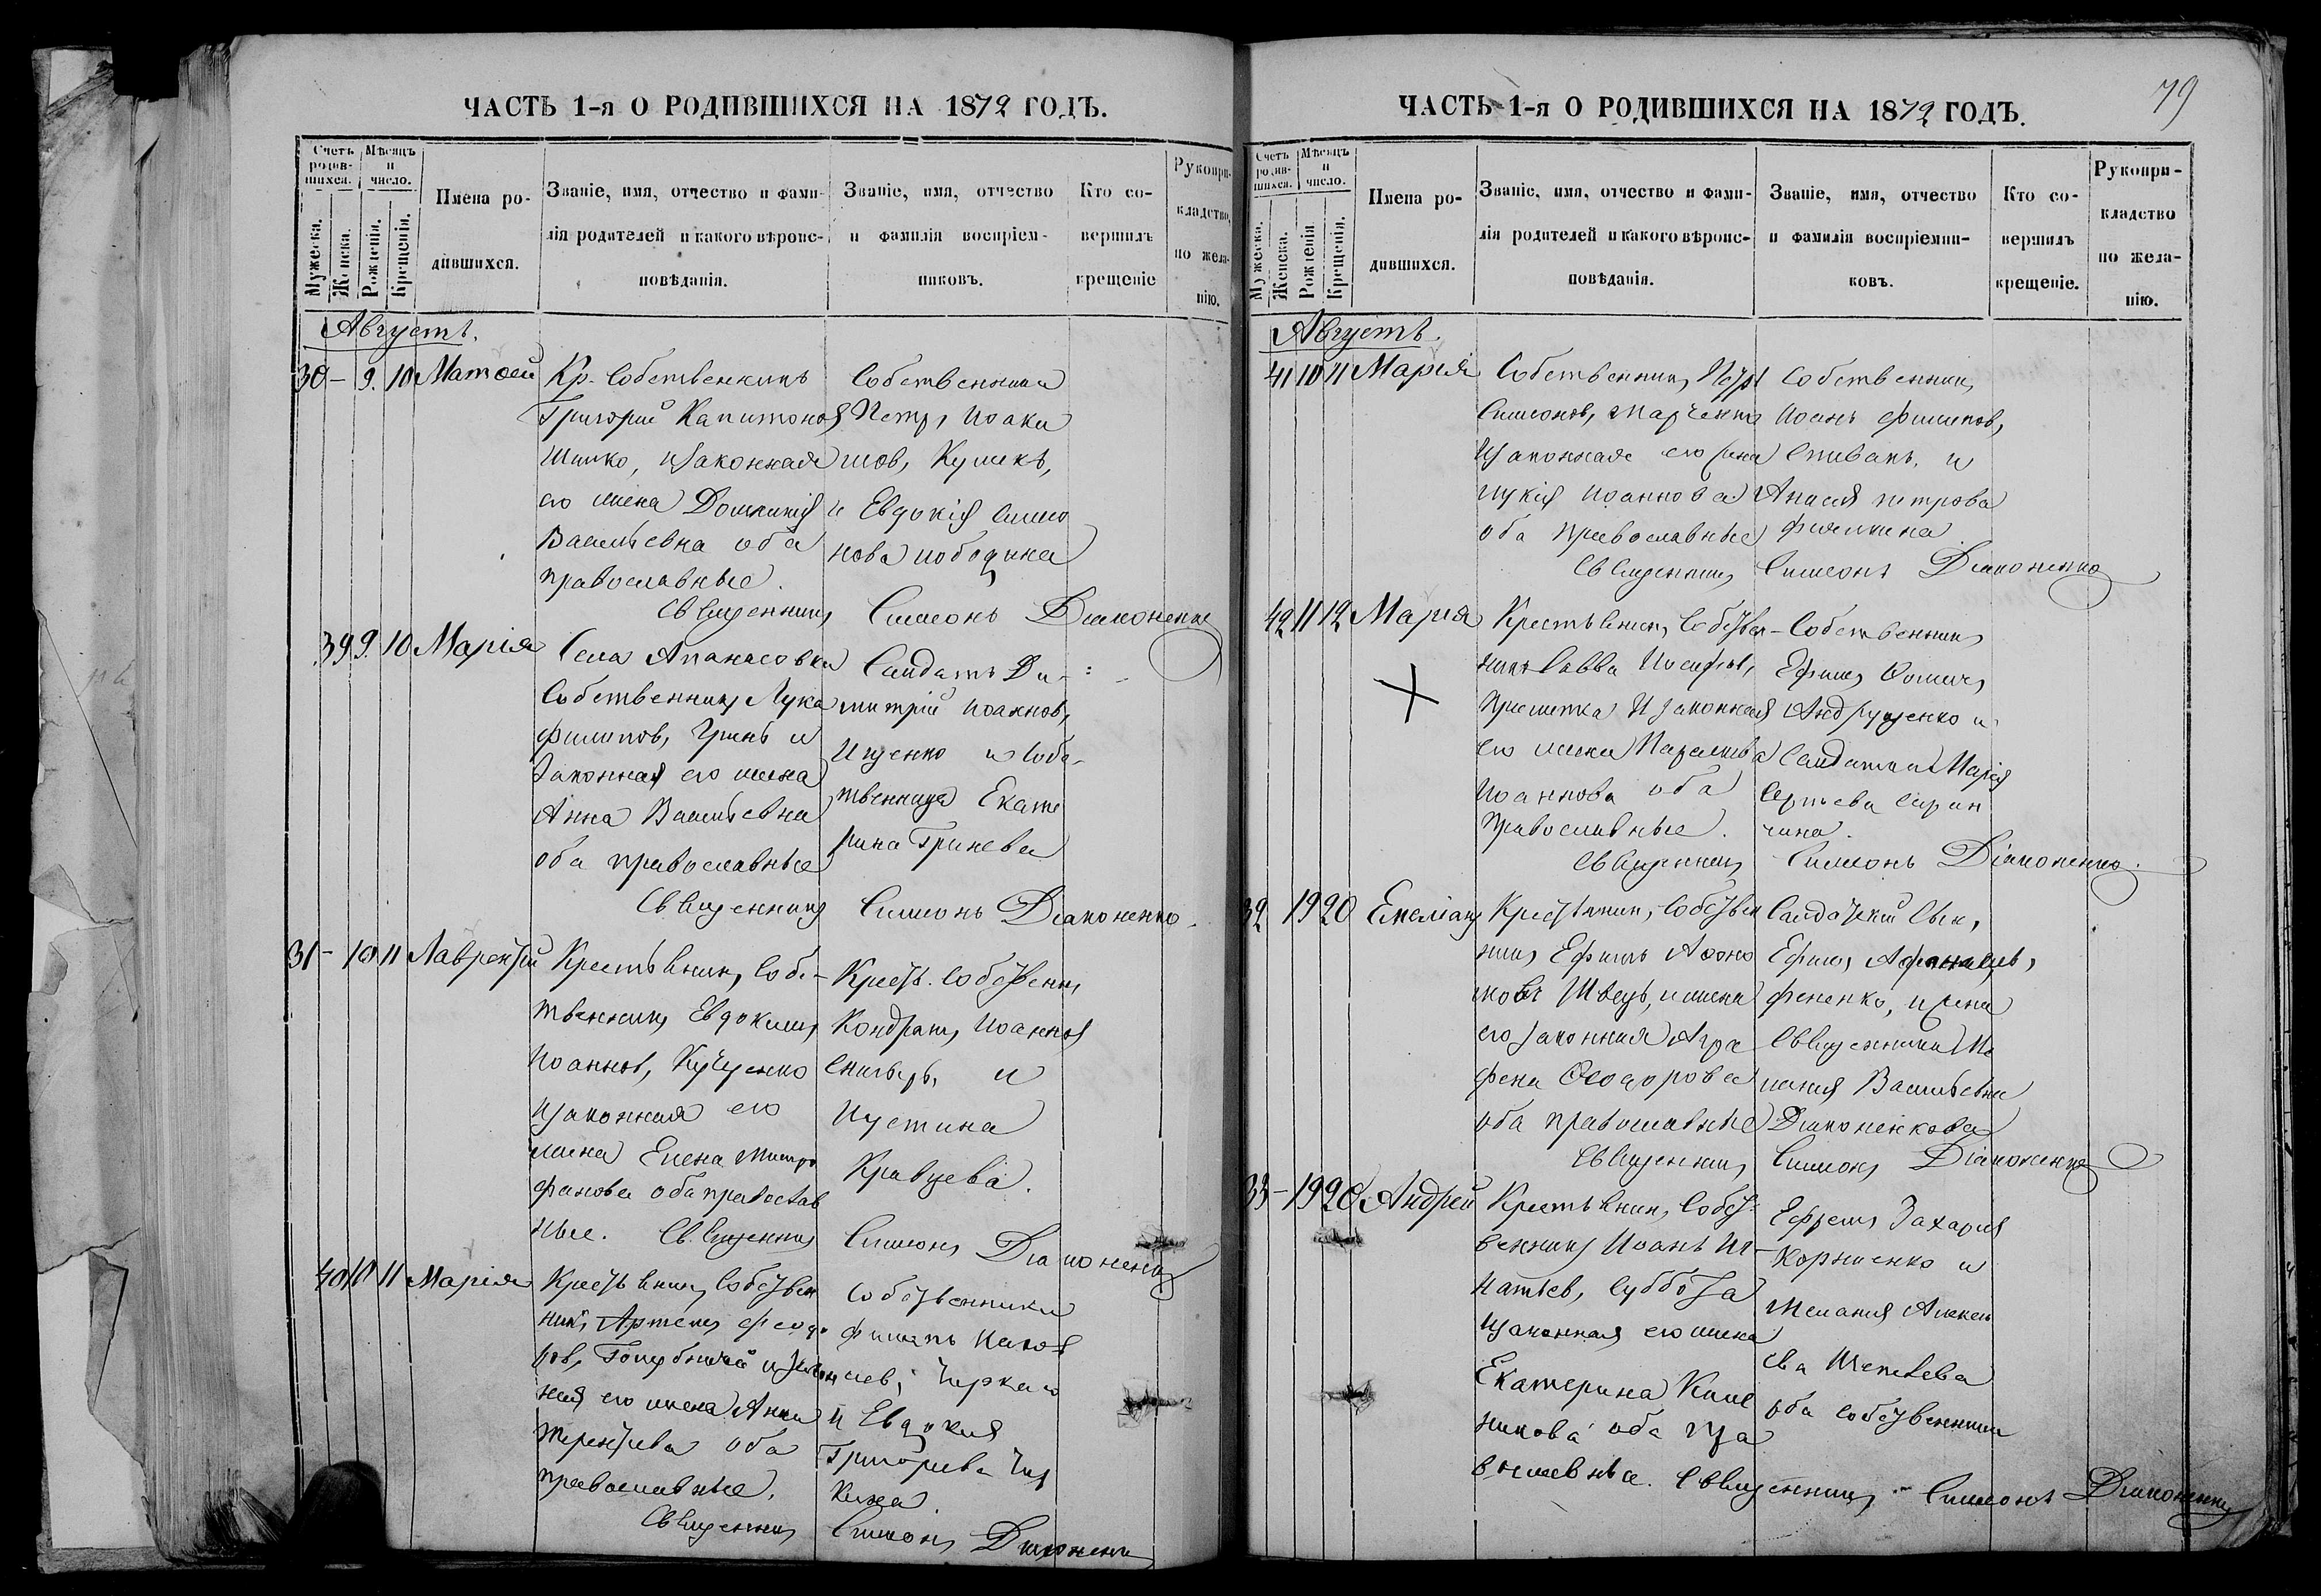 ЧАСТЬ 1-я О РОДИВШИХСЯ НА 1872 ГОДЪ.
Счетъ родив-шихся.
Мѣсяцъ и число.
Мужеска.
Женска.
Рожденія.
Крещенія.
Имена ро-
дившихся.
Званіе, имя, отчество и фами-
лія родителей и какого вѣроис-
повѣданія.
Званіе, имя, отчество
и фамилія воспріем-
никовъ.
Кто со-
вершилъ
крещеніе
Рукопри-
кладство,
по жела-
нію.
Августъ.
30 - 9. 10 Матѳей
Кр. Собственникъ
Григорій Капитонов
Шило, и законная
его жена Домникія
Васильевна оба
православные.
Собственники
Петръ Иоаки
мов, Куликъ,
и Евдокія Симо
нова
Священникъ Симеонъ Діаконенко
39 9. 10 Марія
Села Апанасовки
Собственникъ Лука
Филипов, Гринь и
законная его жена
Анна Васильевна
оба православные
Солдатъ Ди-
митрій Иоаннов,
Ищенко и Собс-
твенница Екате
рина Гринева
Священникъ Симеонъ Діаконенко.
31 - 10 11 Лаврентій
Крестьянинъ Собс-
твенникъ Евдокимъ
Иоаннов, Куценко
и законная его
жена Елена Митро
фанова оба православ
ные.
Крест. Собственн
Кондратъ Иоаннов
и
Иустина
Кравцева.
Священникъ Симеонъ Діаконенко
40 10 11 Марія
Крестьянинъ Собствен
никъ Артемъ Феодо
ров, Голубничій и закон
ная его жена Анна
Терентиева оба
православные.
Собственники
Филипъ
и Евдокия
Григориева
Священникъ Симеонъ Діаконенко
ЧАСТЬ 1-я О РОДИВШИХСЯ НА 1872 ГОДЪ.
79
Счетъ родив-шихся.
Мѣсяцъ и число.
Мужеска.
Женска.
Рожденія.
Крещенія.
Имена ро-
дившихся.
Званіе, имя, отчество и фами-
лія родителей и какого вѣроис-
повѣданія.
Званіе, имя, отчество
и фамилія воспріемни-
ковъ.
Кто со-
вершилъ
крещеніе.
Рукопри-
кладство
по жела-
нію.
Августъ.
41 10 11 Марія
Собственникъ Петръ
Симеонов, Марченко
и законная его жена
Лукія Иоаннова
оба православные
Собственникъ
Иоанъ Филипов,
и
Анисия петрова
Священникъ Симеонъ Діаконенко
42 11 12 Мария
Крестьянинъ Собствен-
никъ Савва Иосифов,
и законная
его жена Параскева
Иоаннова оба
православные.
Собственникъ
Ефимъ Фомичъ
Андрущенко и
Солдатка Мария
Сергиева
Священникъ Симеонъ Діаконенко.
32 19 20 Емеліанъ
Крестьянинъ Собствен
никъ Ефимъ
Швецъ, и жена
его законная Агра
фена Феодорова
оба православные
Солдатский Сын,
Ефимъ Афанасиев,
Фененко, и жена
Священника Ме
лания Васильевна
Діаконенкова
Священникъ Симеонъ Діаконенко
33 - 19 20 Андрей
Крестьянинъ Собст-
венникъ Иоанъ Иг-
натьев, Суббота
и законная его жена
Екатерина Кали
никова оба пра
вославные.
Ефремъ Захария
Корниенко и
Мелания Алексе
ева
оба собственники
Священникъ Симеонъ Діаконенко